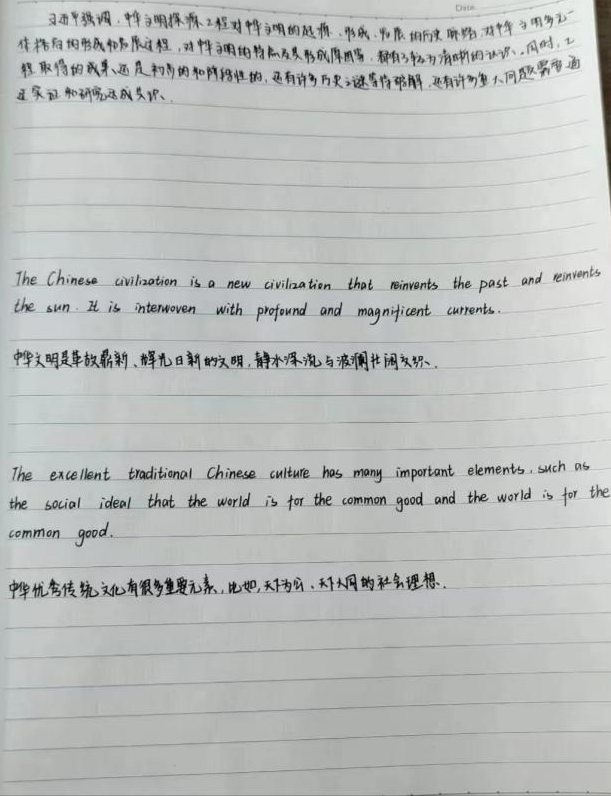 Date.
习近平强调,中华文明探源工程对中华文明的起源、形成、发展的历史脉络,对中华文明多元一
体格局的形成和发展过程,对中华文明的特点及其形成原因等,都有了较为清晰的认识。同时,工
程取得的成果还是初步的和阶段性的,还有许多历史之谜等待破解,还有许多重大问题需要通
过实证和研究达成共识、
The Chinese civilization is a new civilization that reinvents the past and reinvents
the sun. It is interwoven with profound and magnificent currents.
中华文明是革故鼎新、辉光日新的文明,静水深流与波澜壮阔交织、
The excellent traditional Chinese culture has many important elements, such as
the social ideal that the world is for the common good and the world is for the
common good.
中华优秀传统文化有很多重要元素,比如,天下为公、天下大同的社会理想.